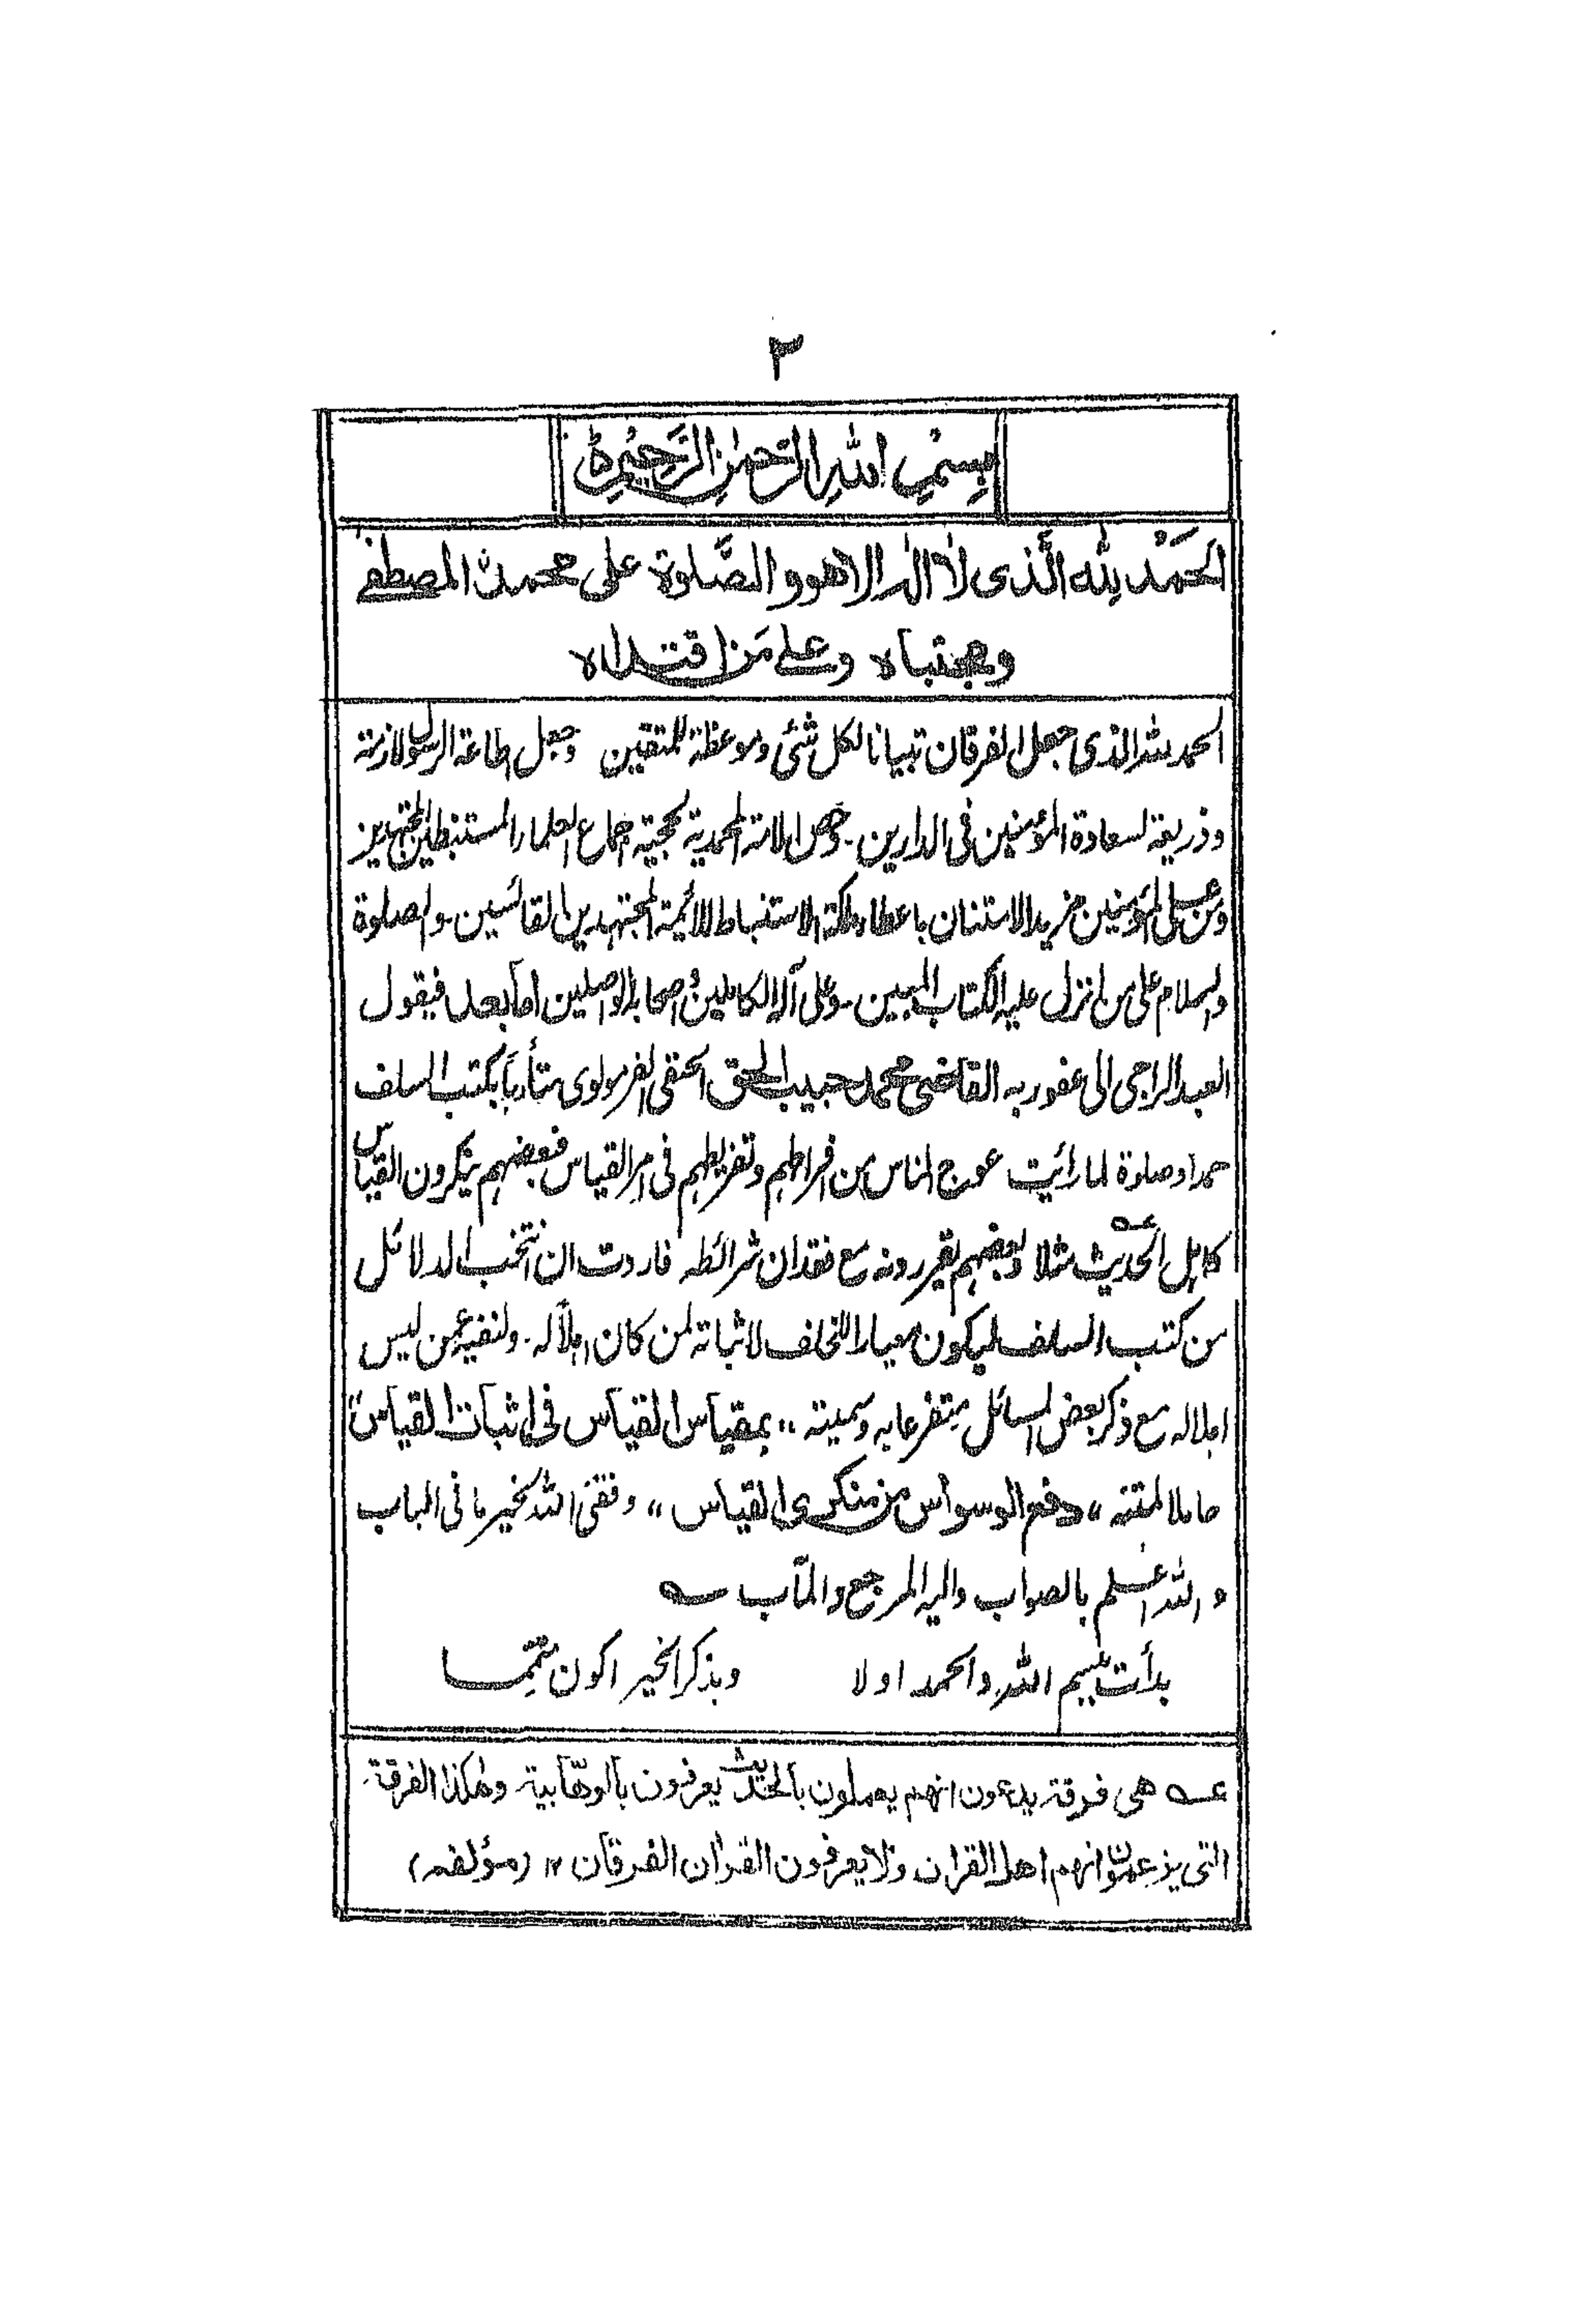 ٣
بِسْمِ اللهِ الرَّحْمٰنِ الرَّحِيْمِ ط
الحَمْد لِلّٰه الَّذی لا الٰہ الا هو و الصَّلوٰة علی محمدن المصطفٰے
ومجتباه وعلے مَن اقتداه
الحمد للہ الذی جعل الفرقان تبیانا لکل شئی وموعظة للمتقین وجعل اطاعة الرسول لازمة
و ذریعة لسعادة المؤمنین فی الدارین۔ وخص الامة المحمدیة بحجیة اجماع العلماء المستنبطین المجتهدین
ومن علی المؤمنین مزید الامتنان باعطاء ملکة الاستنباط للائمة المجتهدین القائسین۔ والصلوة
والسلام علی من انزل علیہ الکتاب المبین۔ وعلی آلہ الکاملین واصحابہ الواصلین اما بعد فیقول
العبد الراجی الی عفو ربہ القاضی محمد حبیب الحق الحنفی الفرمولوی متأدباً بکتب السلف
حمدا وصلوة لما رائیت عوج الناس من افراطہم وتفریطہم فی امر القیاس فبعضہم ینکرون القیاس
کاہل الحدیث عہ مثلا وبعضہم یقررونہ مع فقدان شرائطہ فاردت ان انتخب الدلائل
من کتب السلف لیکون معیارا للخلف لاثباتہ لمن کان اہلاً لہ۔ ولنفیہ عمن لیس
اہلا لہ مع ذکر بعض المسائل متفرعا بہ وسمیتہ ،، بمقیاس القیاس فی اثبات القیاس،،
حاملا لمتنہ ،، دفع الوسواس من منکری القیاس ،، وفقنی اللہ بخیر ما فی الباب
و اللہ اعلم بالصواب والیہ المرجع والمآب ؎
بدأت ببسم اللہ والحمد اولا وبذکر الخیر اکون متمما
عہ هی فرقة یدعون انهم یعملون بالحدیث یعرفون بالوهّابیة۔ وهٰکذا الفرقة
التی یزعمون انهم اهل القراٰن ولا یعرفون القراٰن الفرقان ۱۲ (مؤلفہ)